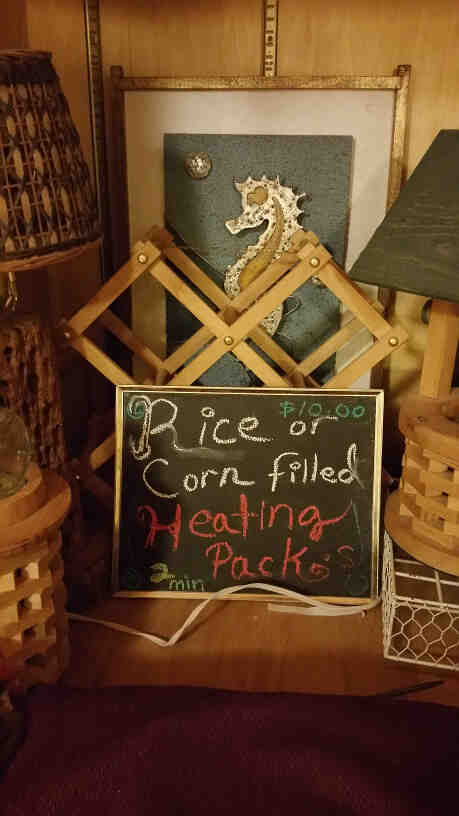 $10.00
Rice or
Corn filled
Heating
Packs
2 min